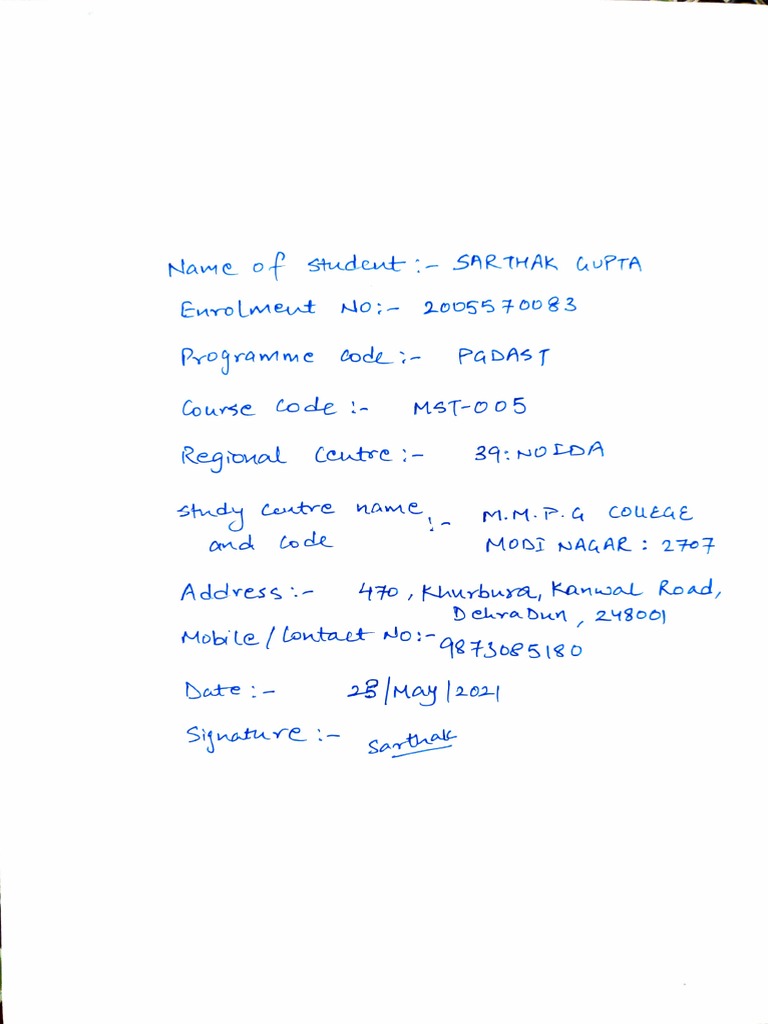 Name of student :- SARTHAK GUPTA
Enrolment No:- 2005570083
Programme code :- PGDAST
Course code :- MST-005
Regional Centre :- 39:NOIDA
Study centre name :- M.M.P.G COLLEGE
and code MODI NAGAR : 2707
Address :- 470, Khurbura, Kanwal Road,
DehraDun, 248001
Mobile/Contact No:- 9873085180
Date :- /May/2021
Signature :- Sarthak